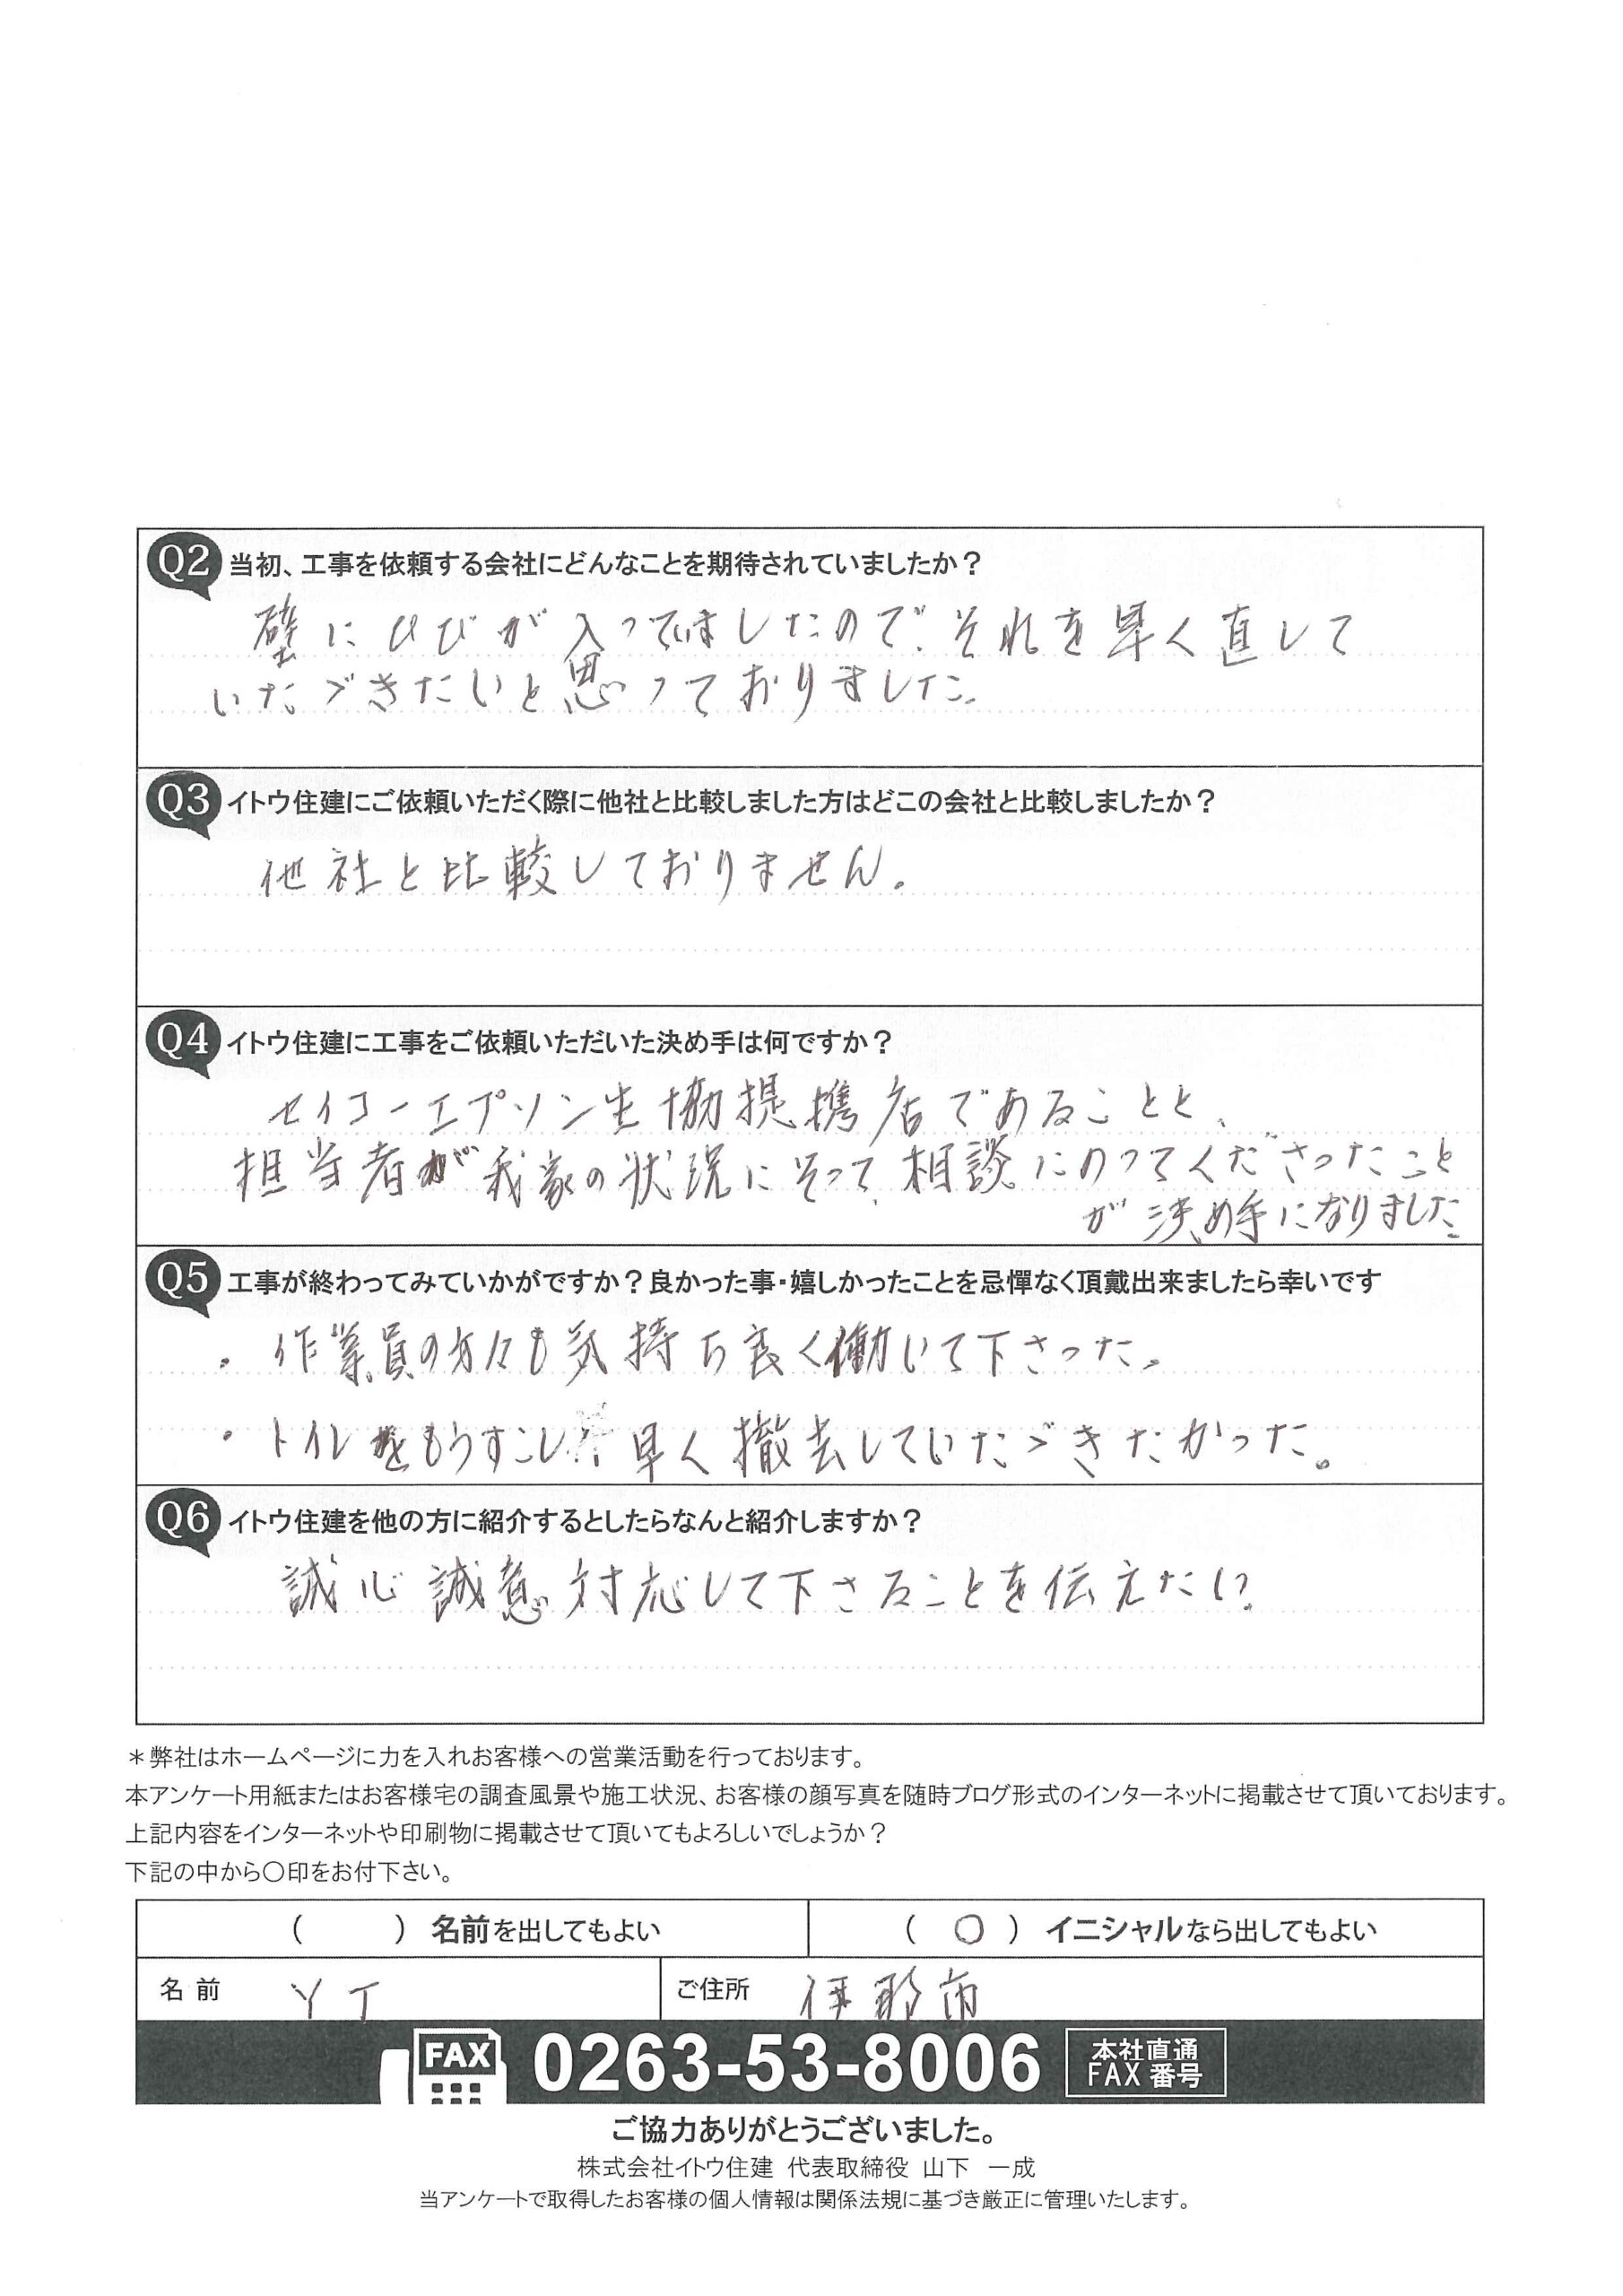 Q2 当初、工事を依頼する会社にどんなことを期待されていましたか？
壁にひびが入ってましたので、それを早く直して
いたゞきたいと思っておりました。
Q3 イトウ住建にご依頼いただく際に他社と比較しました方はどこの会社と比較しましたか？
他社と比較しておりません。
Q4 イトウ住建に工事をご依頼いただいた決め手は何ですか？
セイコーエプソン生協提携店であることと、
担当者が我家の状況にそって、相談にのってくださったこと
が決め手になりました
Q5 工事が終わってみていかがですか？良かった事・嬉しかったことを忌憚なく頂戴出来ましたら幸いです
・作業員の方々も気持ち良く働いて下さった。
・トイレをもうすこし早く撤去していたゞきたかった。
Q6 イトウ住建を他の方に紹介するとしたらなんと紹介しますか？
誠心誠意対応して下さることを伝えたい。
＊弊社はホームページに力を入れお客様への営業活動を行っております。
本アンケート用紙またはお客様宅の調査風景や施工状況、お客様の顔写真を随時ブログ形式のインターネットに掲載させて頂いております。
上記内容をインターネットや印刷物に掲載させて頂いてもよろしいでしょうか？
下記の中から〇印をお付下さい。
（　　）名前を出してもよい （ 〇 ）イニシャルなら出してもよい
名前 YT ご住所 伊那市
FAX 0263-53-8006 本社直通
FAX 番号
ご協力ありがとうございました。
株式会社イトウ住建 代表取締役 山下 一成
当アンケートで取得したお客様の個人情報は関係法規に基づき厳正に管理いたします。